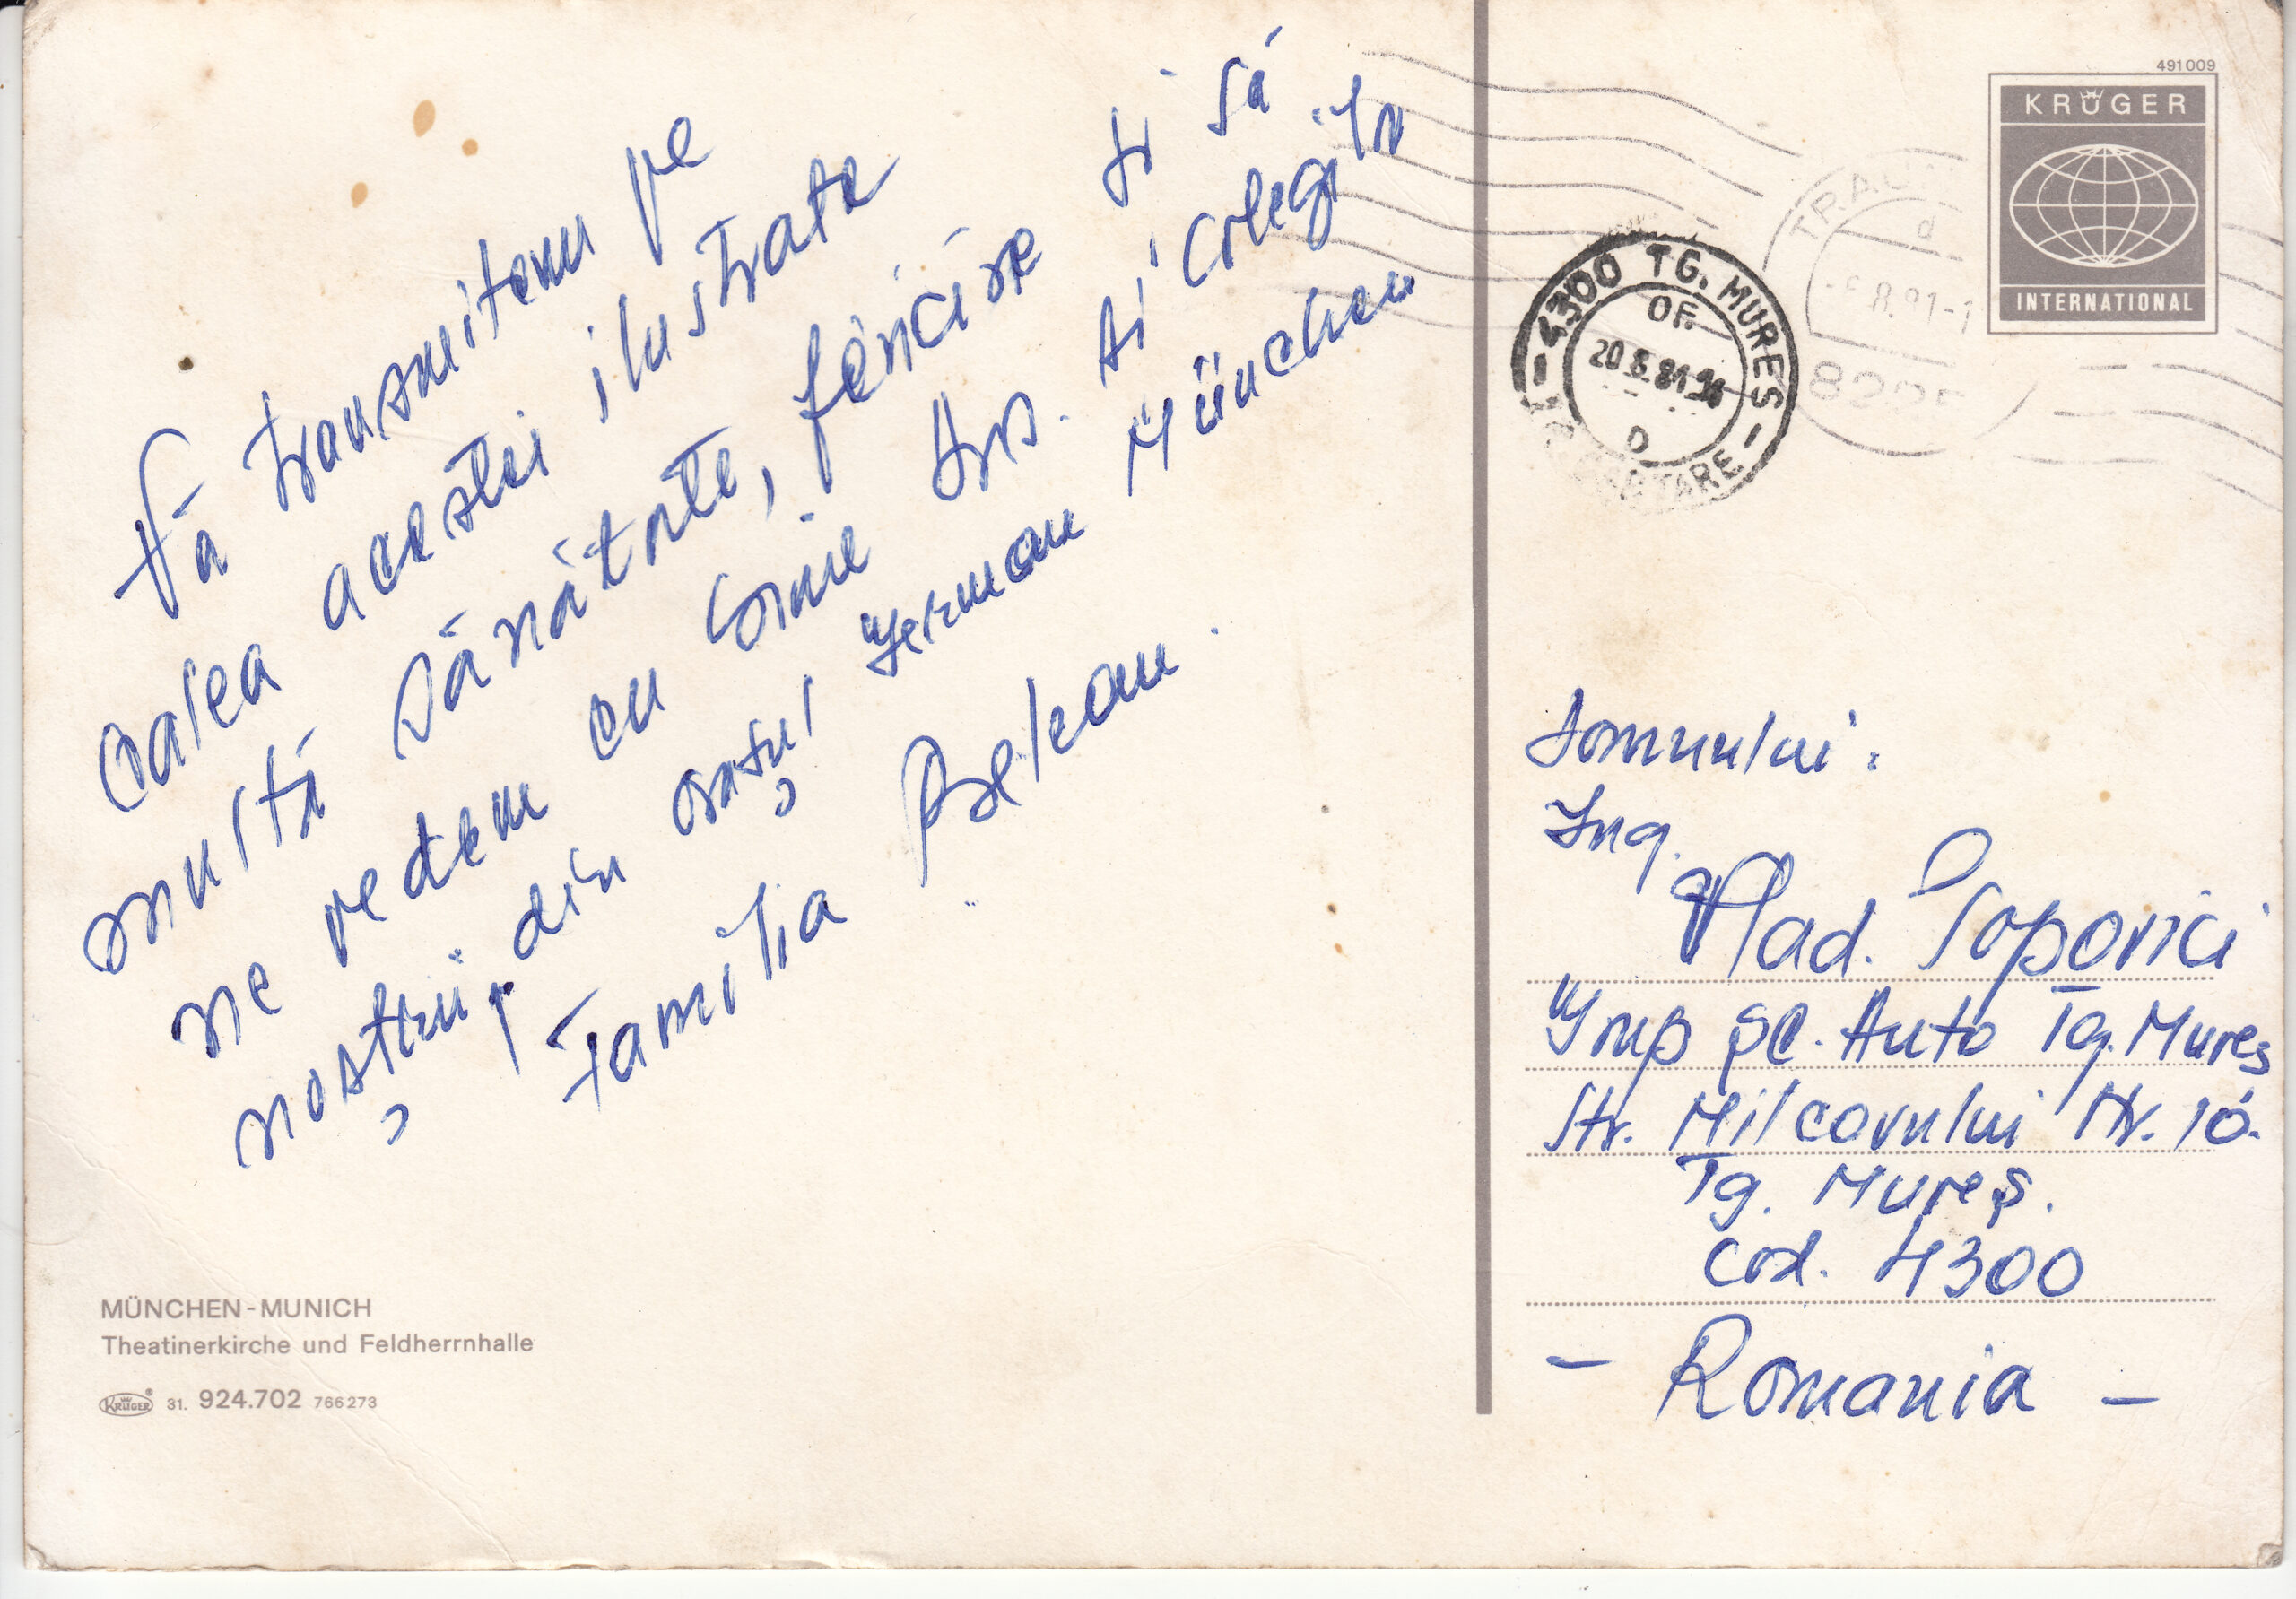 Vă transmitem pe
calea acestei ilustrate
multă sănătate, fericire și să
ne vedem cu bine dvs. și colegilor
noștrii, din orașul german München
Familia Belean.
MÜNCHEN - MUNICH
Theatinerkirche und Feldherrnhalle
KRÜGER ® 31. 924.702 766273
491009
KRÜGER
INTERNATIONAL
4300 TG. MUREȘ
OF.
20.8.81
D
Domnului:
Ing.
Vlad. Popovici
Grup Șc. Auto Tg. Mureș
Str. Milcovului Nr. 10.
Tg. Mureș.
Cod. 4300
- Romania -